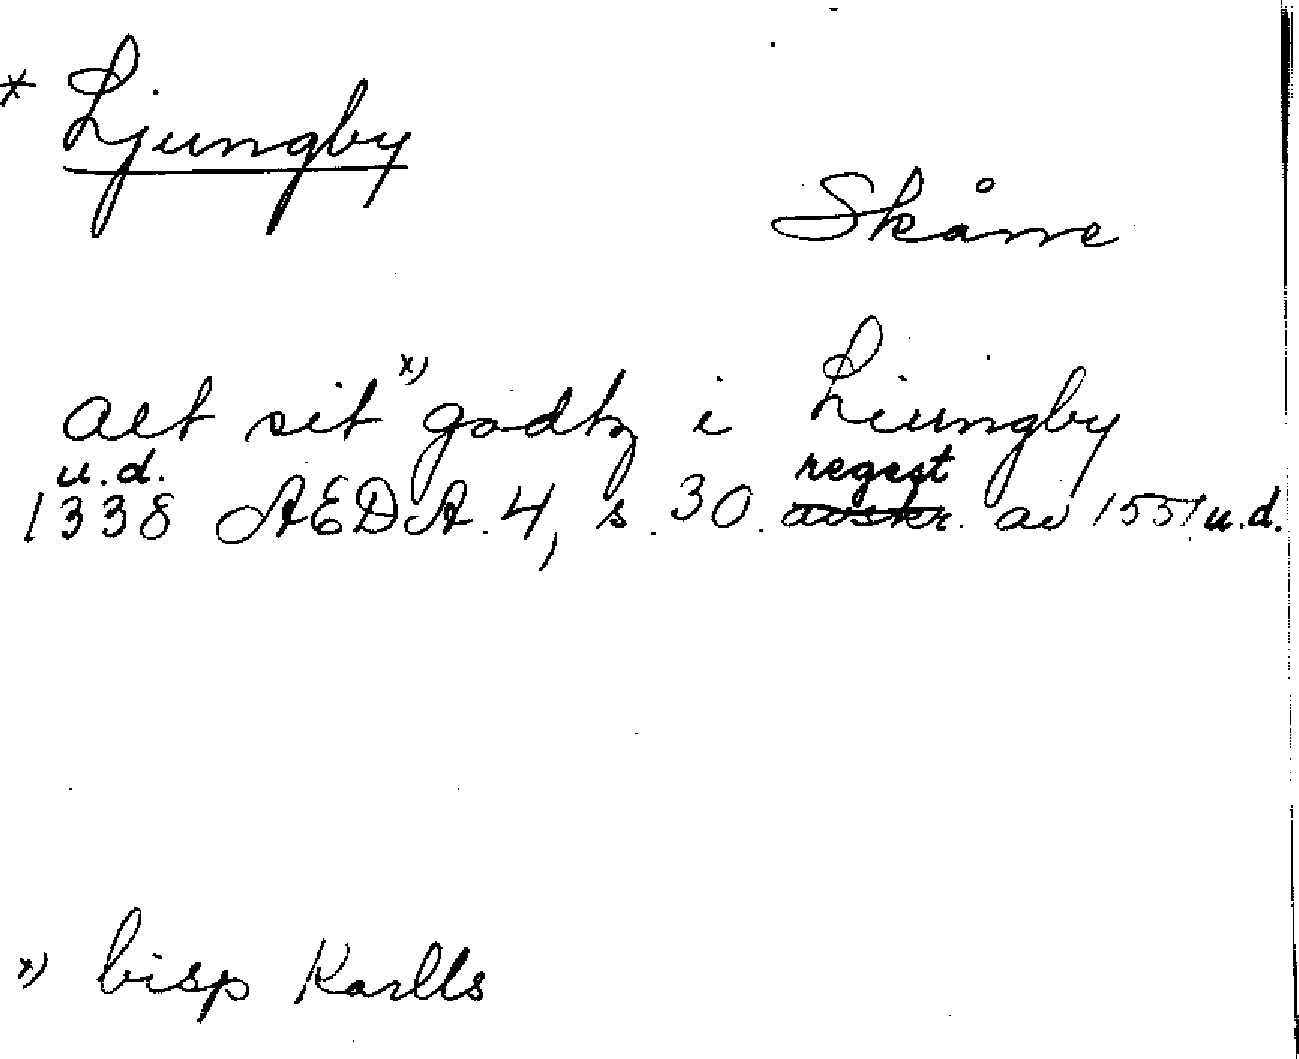 * Ljungby
Skåne
alt sit x) godtz i Liungby
u.d. regest
1338 ÆDA. 4, s. 30. avskr. av 1551 u.d.
x) bisp Karlls